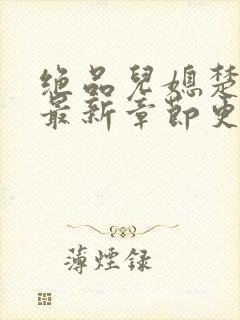 绝品儿媳楚
最新章节更
薄烟录